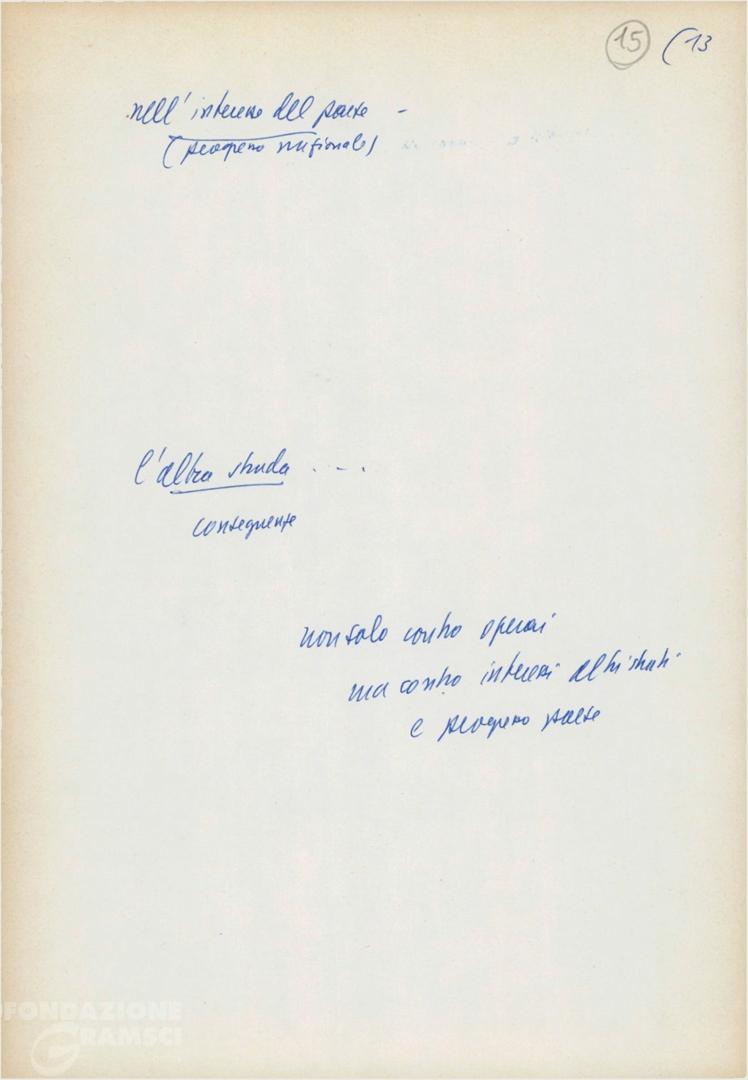 15 (13
nell'interesse del paese -
(progresso nazionale)
l'altra strada ....
conseguenze
non solo contro operai
ma contro interessi altri strati
e progresso paese
FONDAZIONE
GRAMSCI